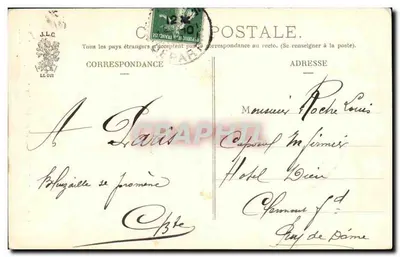 J.L.C
CARTE POSTALE.
Tous les pays étrangers n'acceptent pas la correspondance au recto. (Se renseigner à la poste).
CORRESPONDANCE
ADRESSE
Monsieur Roche Louis
Caporal Infirmier
Hotel Dieu
Clermont Fd
Puy de Dôme
A Paris
se promène